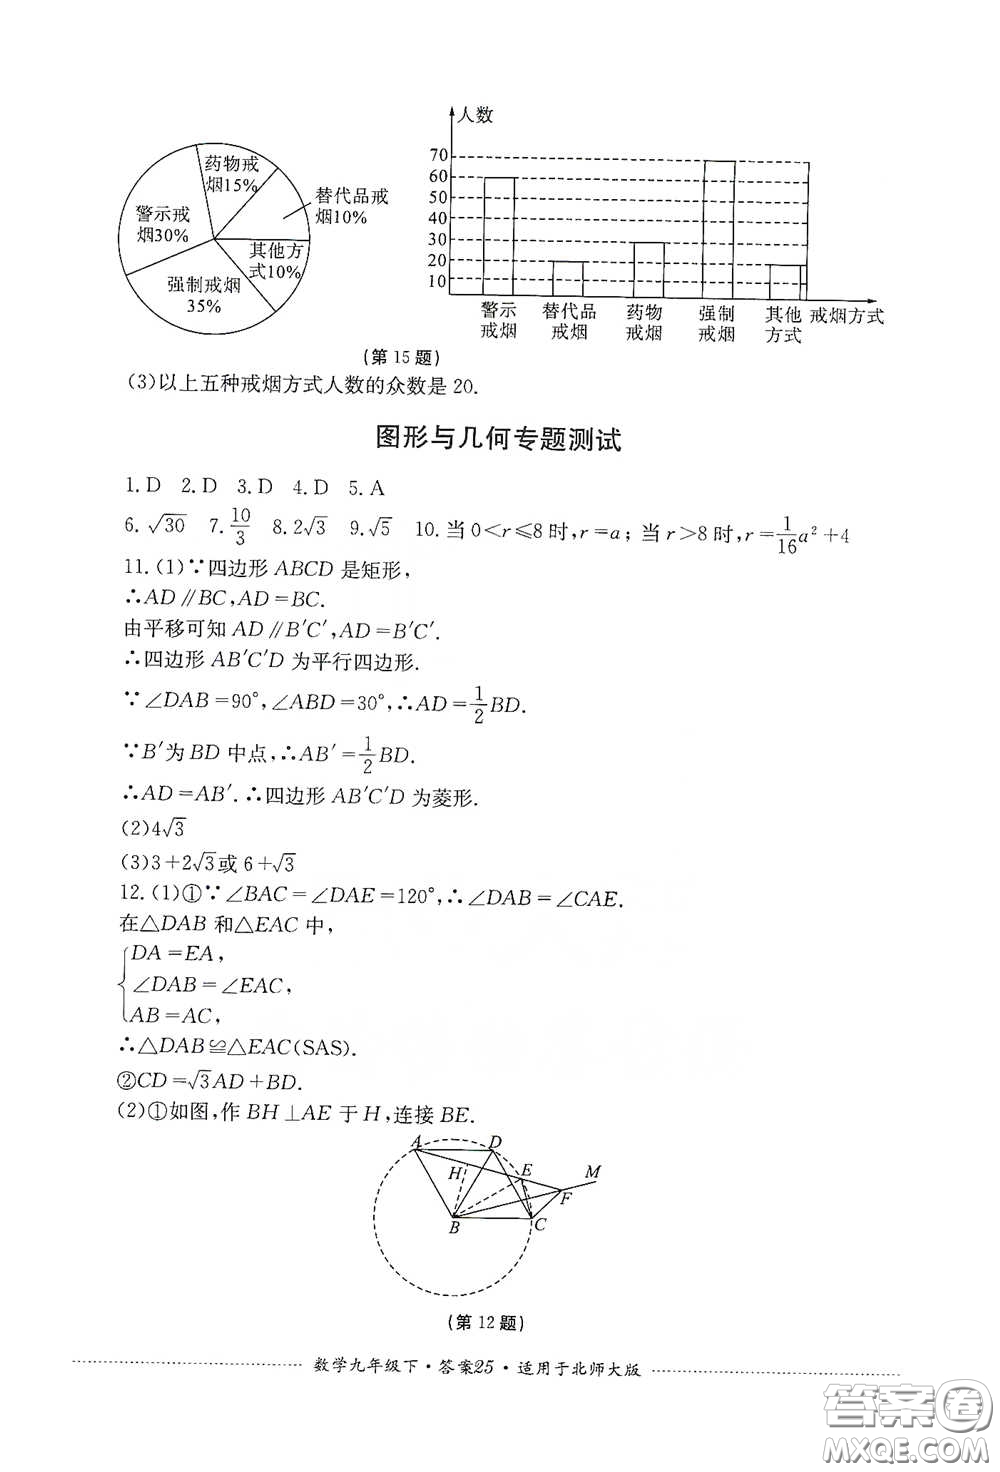 药物戒
烟15%
替代品戒
烟10%
警示戒
烟30%
其他方
式10%
强制戒烟
35%
人数
70
60
50
40
30
20
10
警示
戒烟
替代品
戒烟
药物
戒烟
强制
戒烟
其他
方式
戒烟方式
(第15题)
(3)以上五种戒烟方式人数的众数是20.
图形与几何专题测试
1.D 2.D 3.D 4.D 5.A
6.√30 7.10/3 8.2√3 9.√5 10.当0<r≤8时,r=a; 当r>8时,r=1/16a²+4
11.(1)∵四边形ABCD是矩形,
∴AD∥BC,AD=BC.
由平移可知AD∥B′C′,AD=B′C′.
∴四边形AB′C′D为平行四边形.
∵∠DAB=90°,∠ABD=30°,∴AD=1/2BD.
∵B′为BD中点,∴AB′=1/2BD.
∴AD=AB′.∴四边形AB′C′D为菱形.
(2)4√3
(3)3+2√3或6+√3
12.(1)①∵∠BAC=∠DAE=120°,∴∠DAB=∠CAE.
在△DAB和△EAC中,
DA=EA,
∠DAB=∠EAC,
AB=AC,
∴△DAB≌△EAC(SAS).
②CD=√3AD+BD.
(2)①如图,作BH⊥AE于H,连接BE.
A
D
H
E
M
F
B
C
(第12题)
数学九年级下·答案25·适用于北师大版
答案圈
MXQE.COM